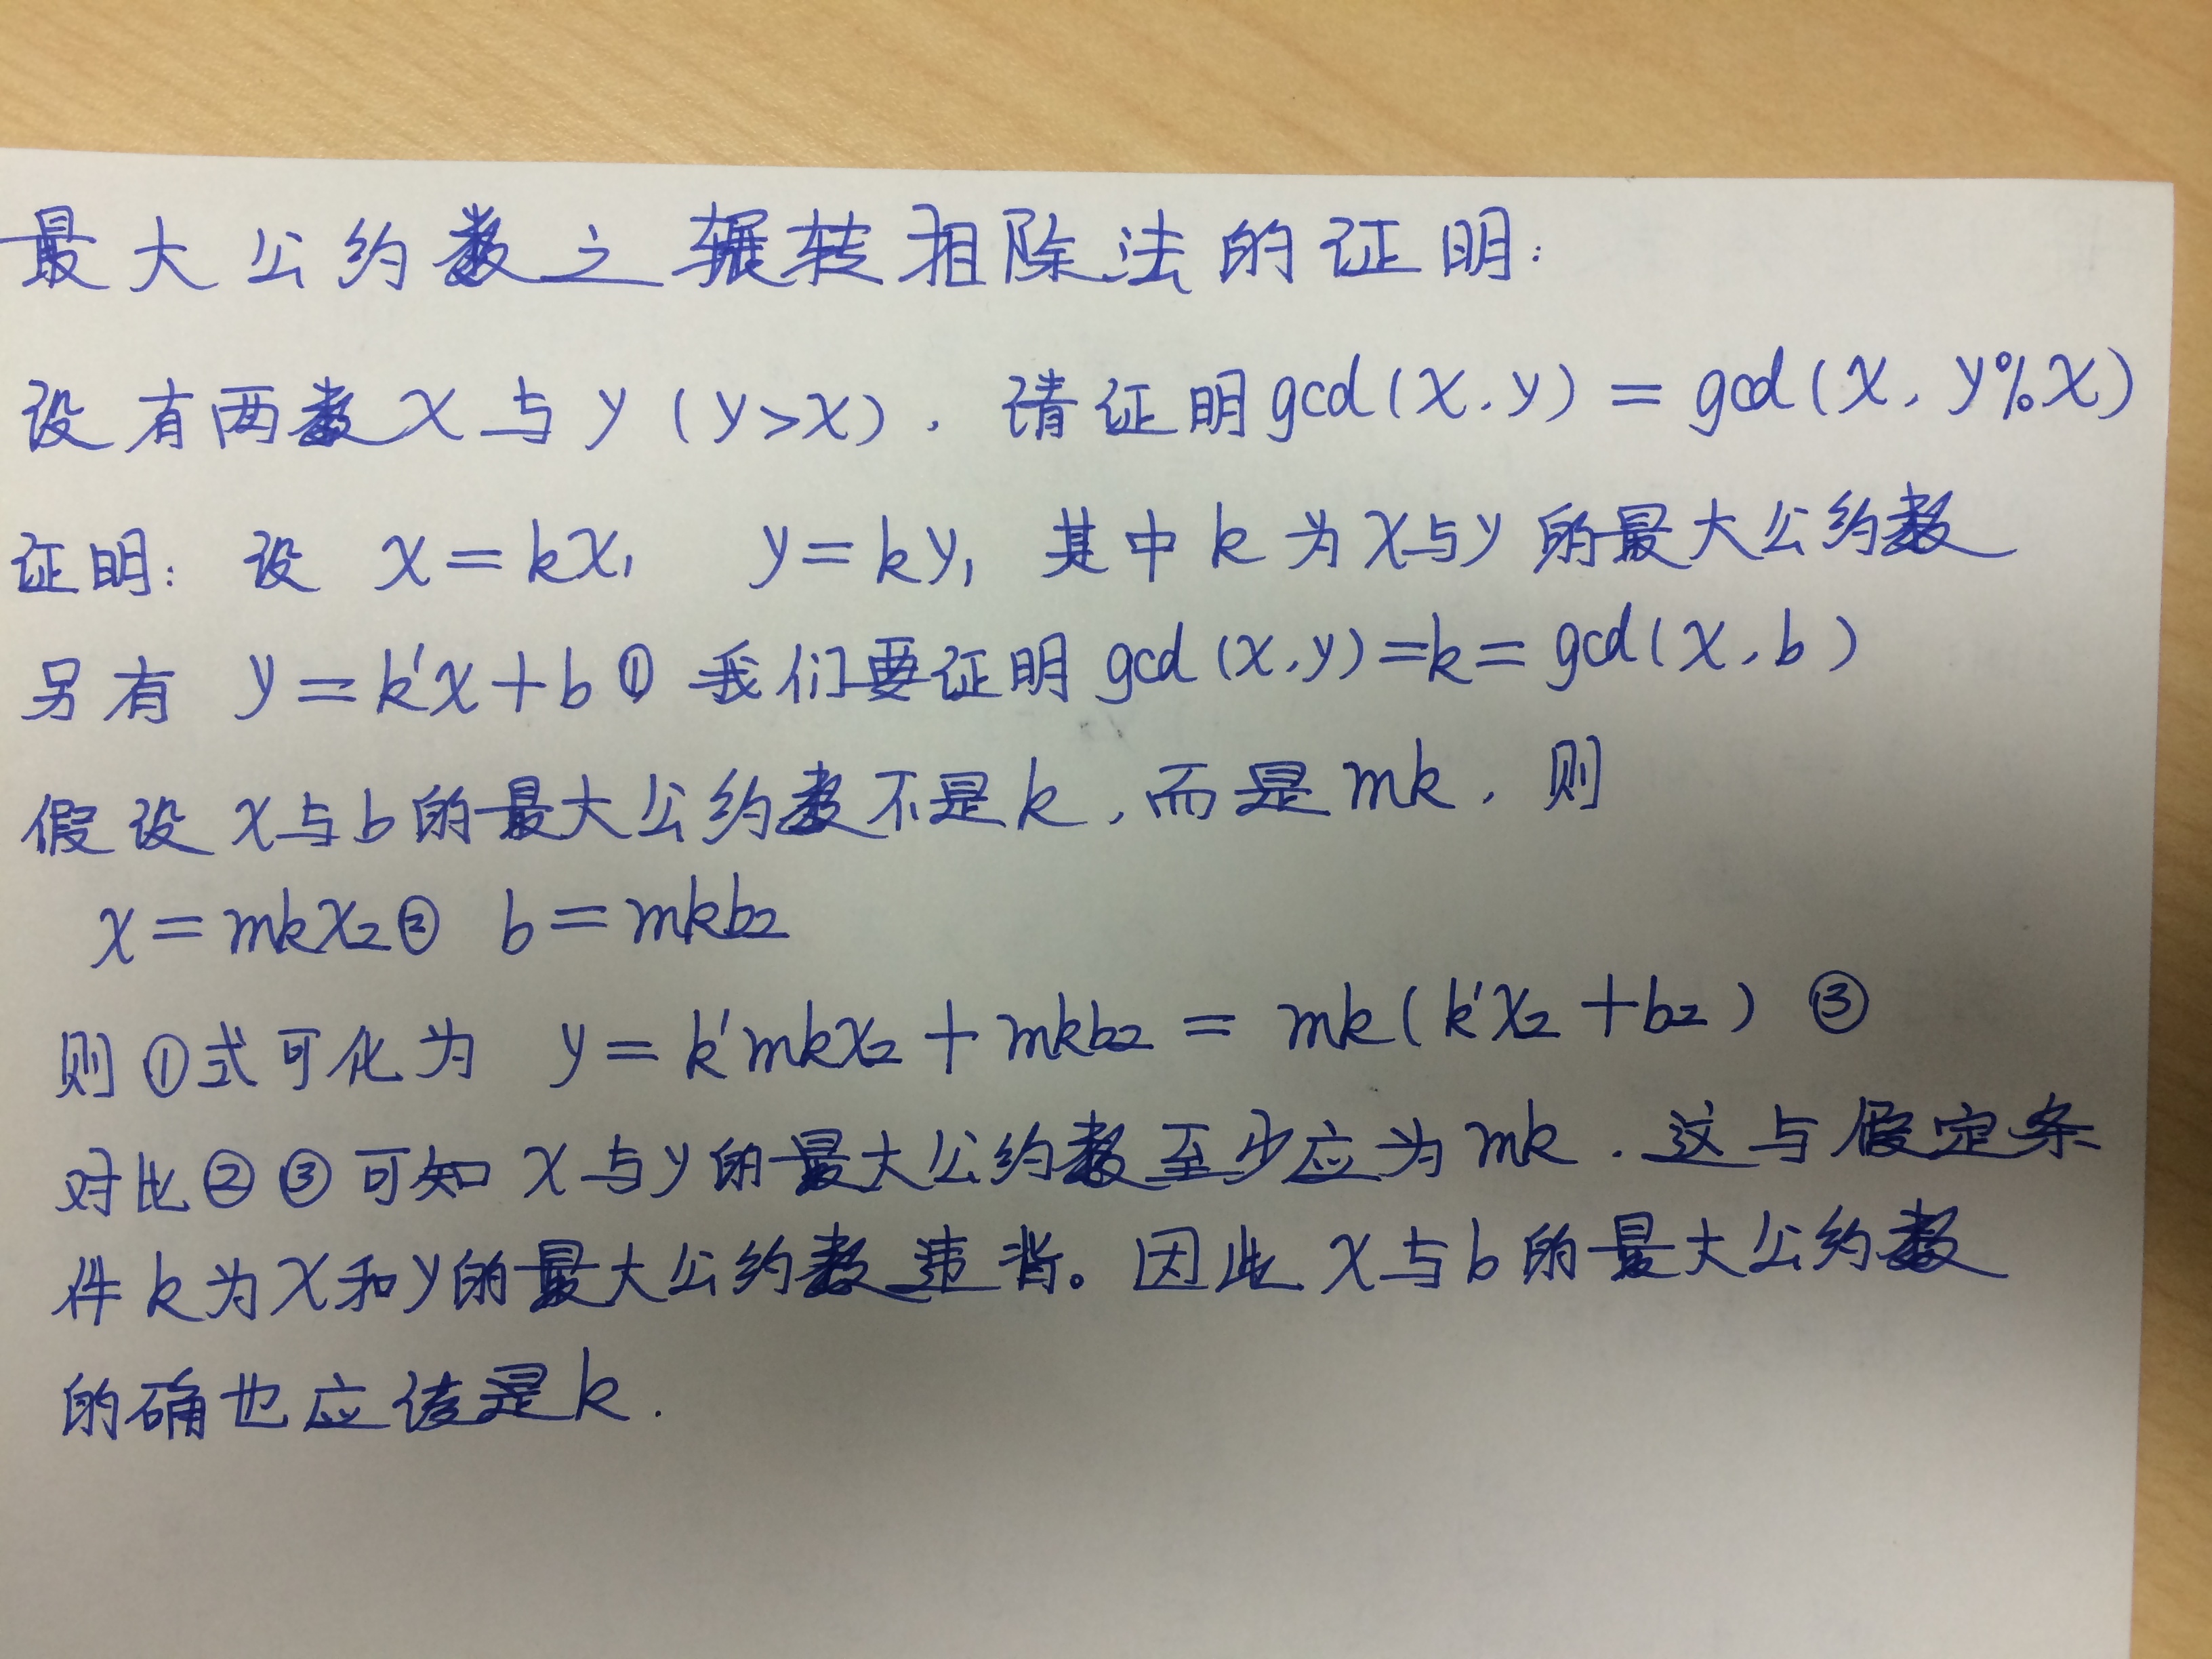 最大公约数之辗转相除法的证明:
设有两数x与y(y>x), 请证明gcd(x,y)=gcd(x,y%x)
证明: 设 x=kx₁ y=ky₁ 其中k为x与y的最大公约数
另有 y=k'x+b① 我们要证明gcd(x,y)=k=gcd(x,b)
假设x与b的最大公约数不是k,而是mk,则
x=mkx₂② b=mkb₂
则①式可化为 y=k'mkx₂+mkb₂=mk(k'x₂+b₂) ③
对比②③可知x与y的最大公约数至少应为mk.这与假定条
件k为x和y的最大公约数相悖。因此x与b的最大公约数
的确也应该是k.